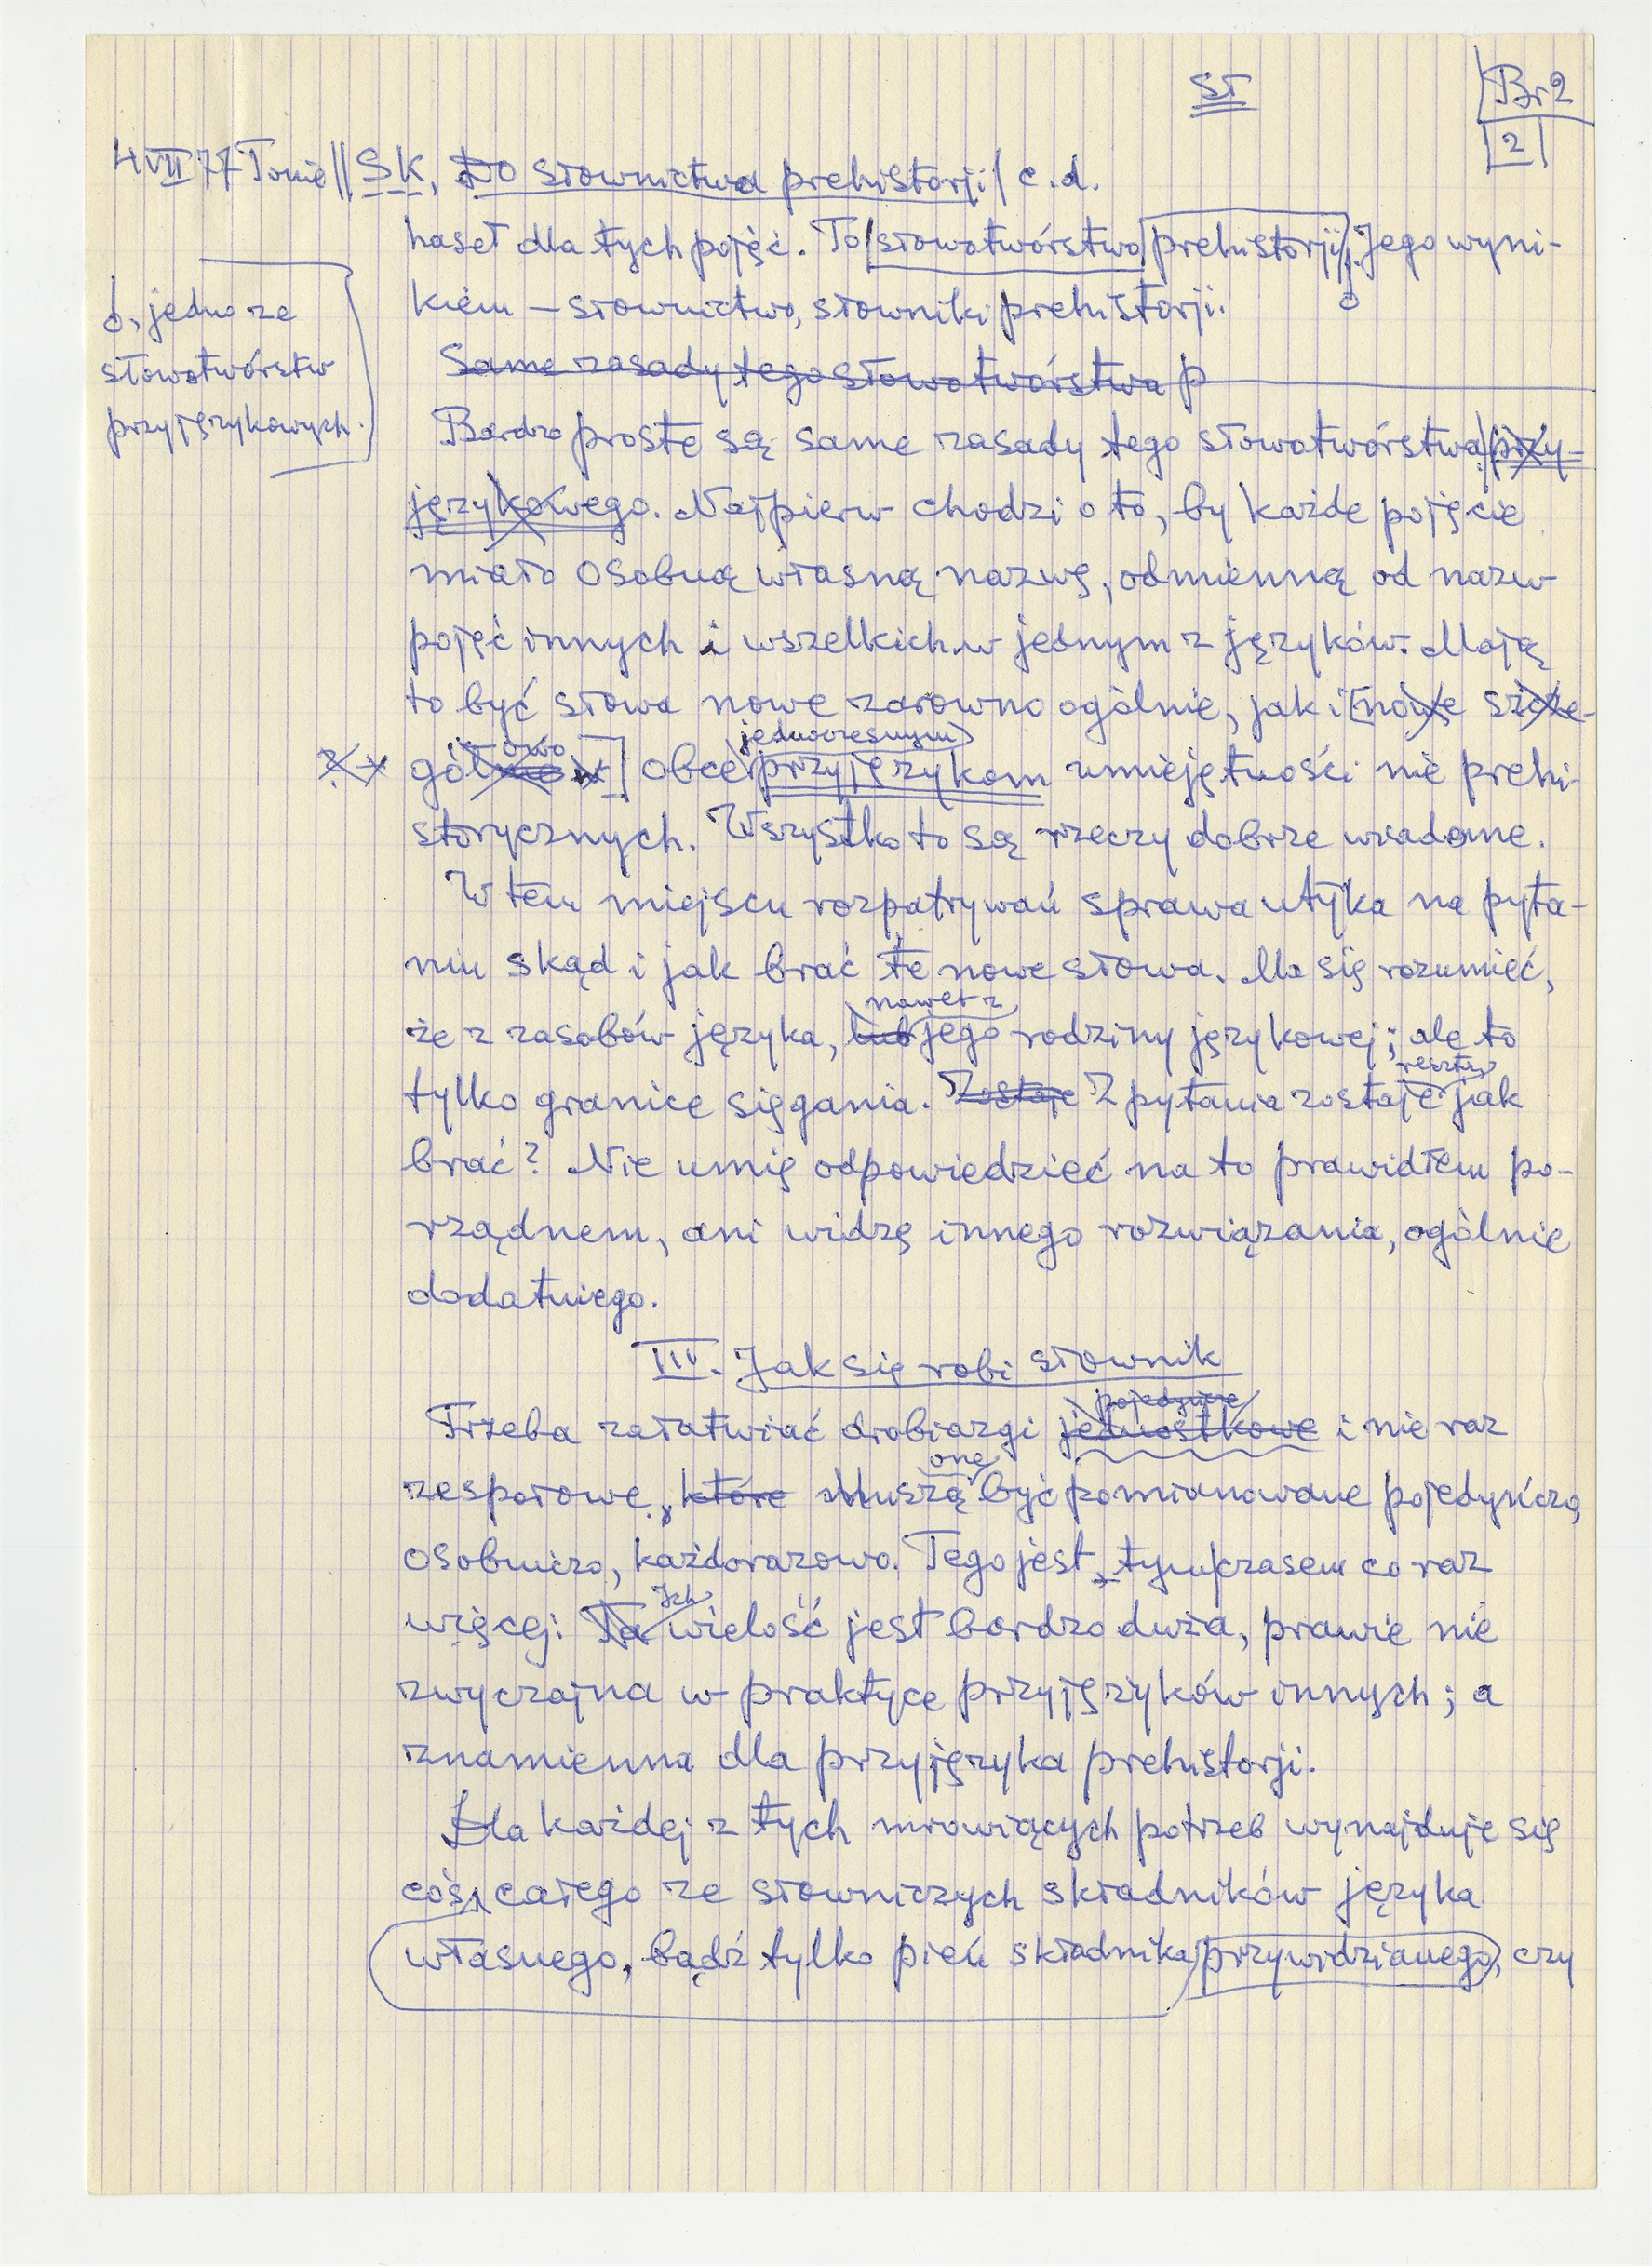 SŁ
Br 2
2
4 VII 77 Tonie || SK, Do słownictwa prehistorji / c.d.
haseł dla tych pojęć. To słowotwórstwo prehistorji. Jego wyni-
kiem – słownictwo, słowniki prehistorji.
, jedno ze
słowotwórstw
przyjęzykowych.
Same zasady tego słowotwórstwa p
Bardzo proste są same zasady tego słowotwórstwa przy-
językowego. Najpierw chodzi o to, by każde pojęcie
miało osobną własną nazwę, odmienną od nazw
pojęć innych i wszelkich w jednym z języków. Mają
to być słowa nowe zarówno ogólnie, jak i [nowe szcze-
gółowo] obce jednoczesnym przyjęzykom umiejętności nie prehi-
storycznych. Wszystko to są rzeczy dobrze wiadome.
W tem miejscu rozpatrywań sprawa utyka na pyta-
niu skąd i jak brać te nowe słowa. Ma się rozumieć,
że z zasobów języka, lub nawet z jego rodziny językowej; ale to
tylko granice sięgania. Zostaje Z pytania zostaje resztą jak
brać? Nie umię odpowiedzieć na to prawidłem po-
rządnem, ani widzę innego rozwiązania, ogólnie
dodatniego.
III. Jak się robi słownik
Trzeba załatwiać drobiazgi jednostkowe pojedyncze i nie raz
zespołowe, które Muszą one być pomianowane pojedynczo,
osobniczo, każdorazowo. Tego jest tymczasem co raz
więcej: Ta Ich wielość jest bardzo duża, prawie nie
zwyczajna w praktyce przyjęzyków innych; a
znamienna dla przyjęzyka prehistorji.
Dla każdej z tych mrowiących potrzeb wynajduje się
coś całego ze słowniczych składników języka
własnego, bądź tylko pień składnika przywidzianego, czy